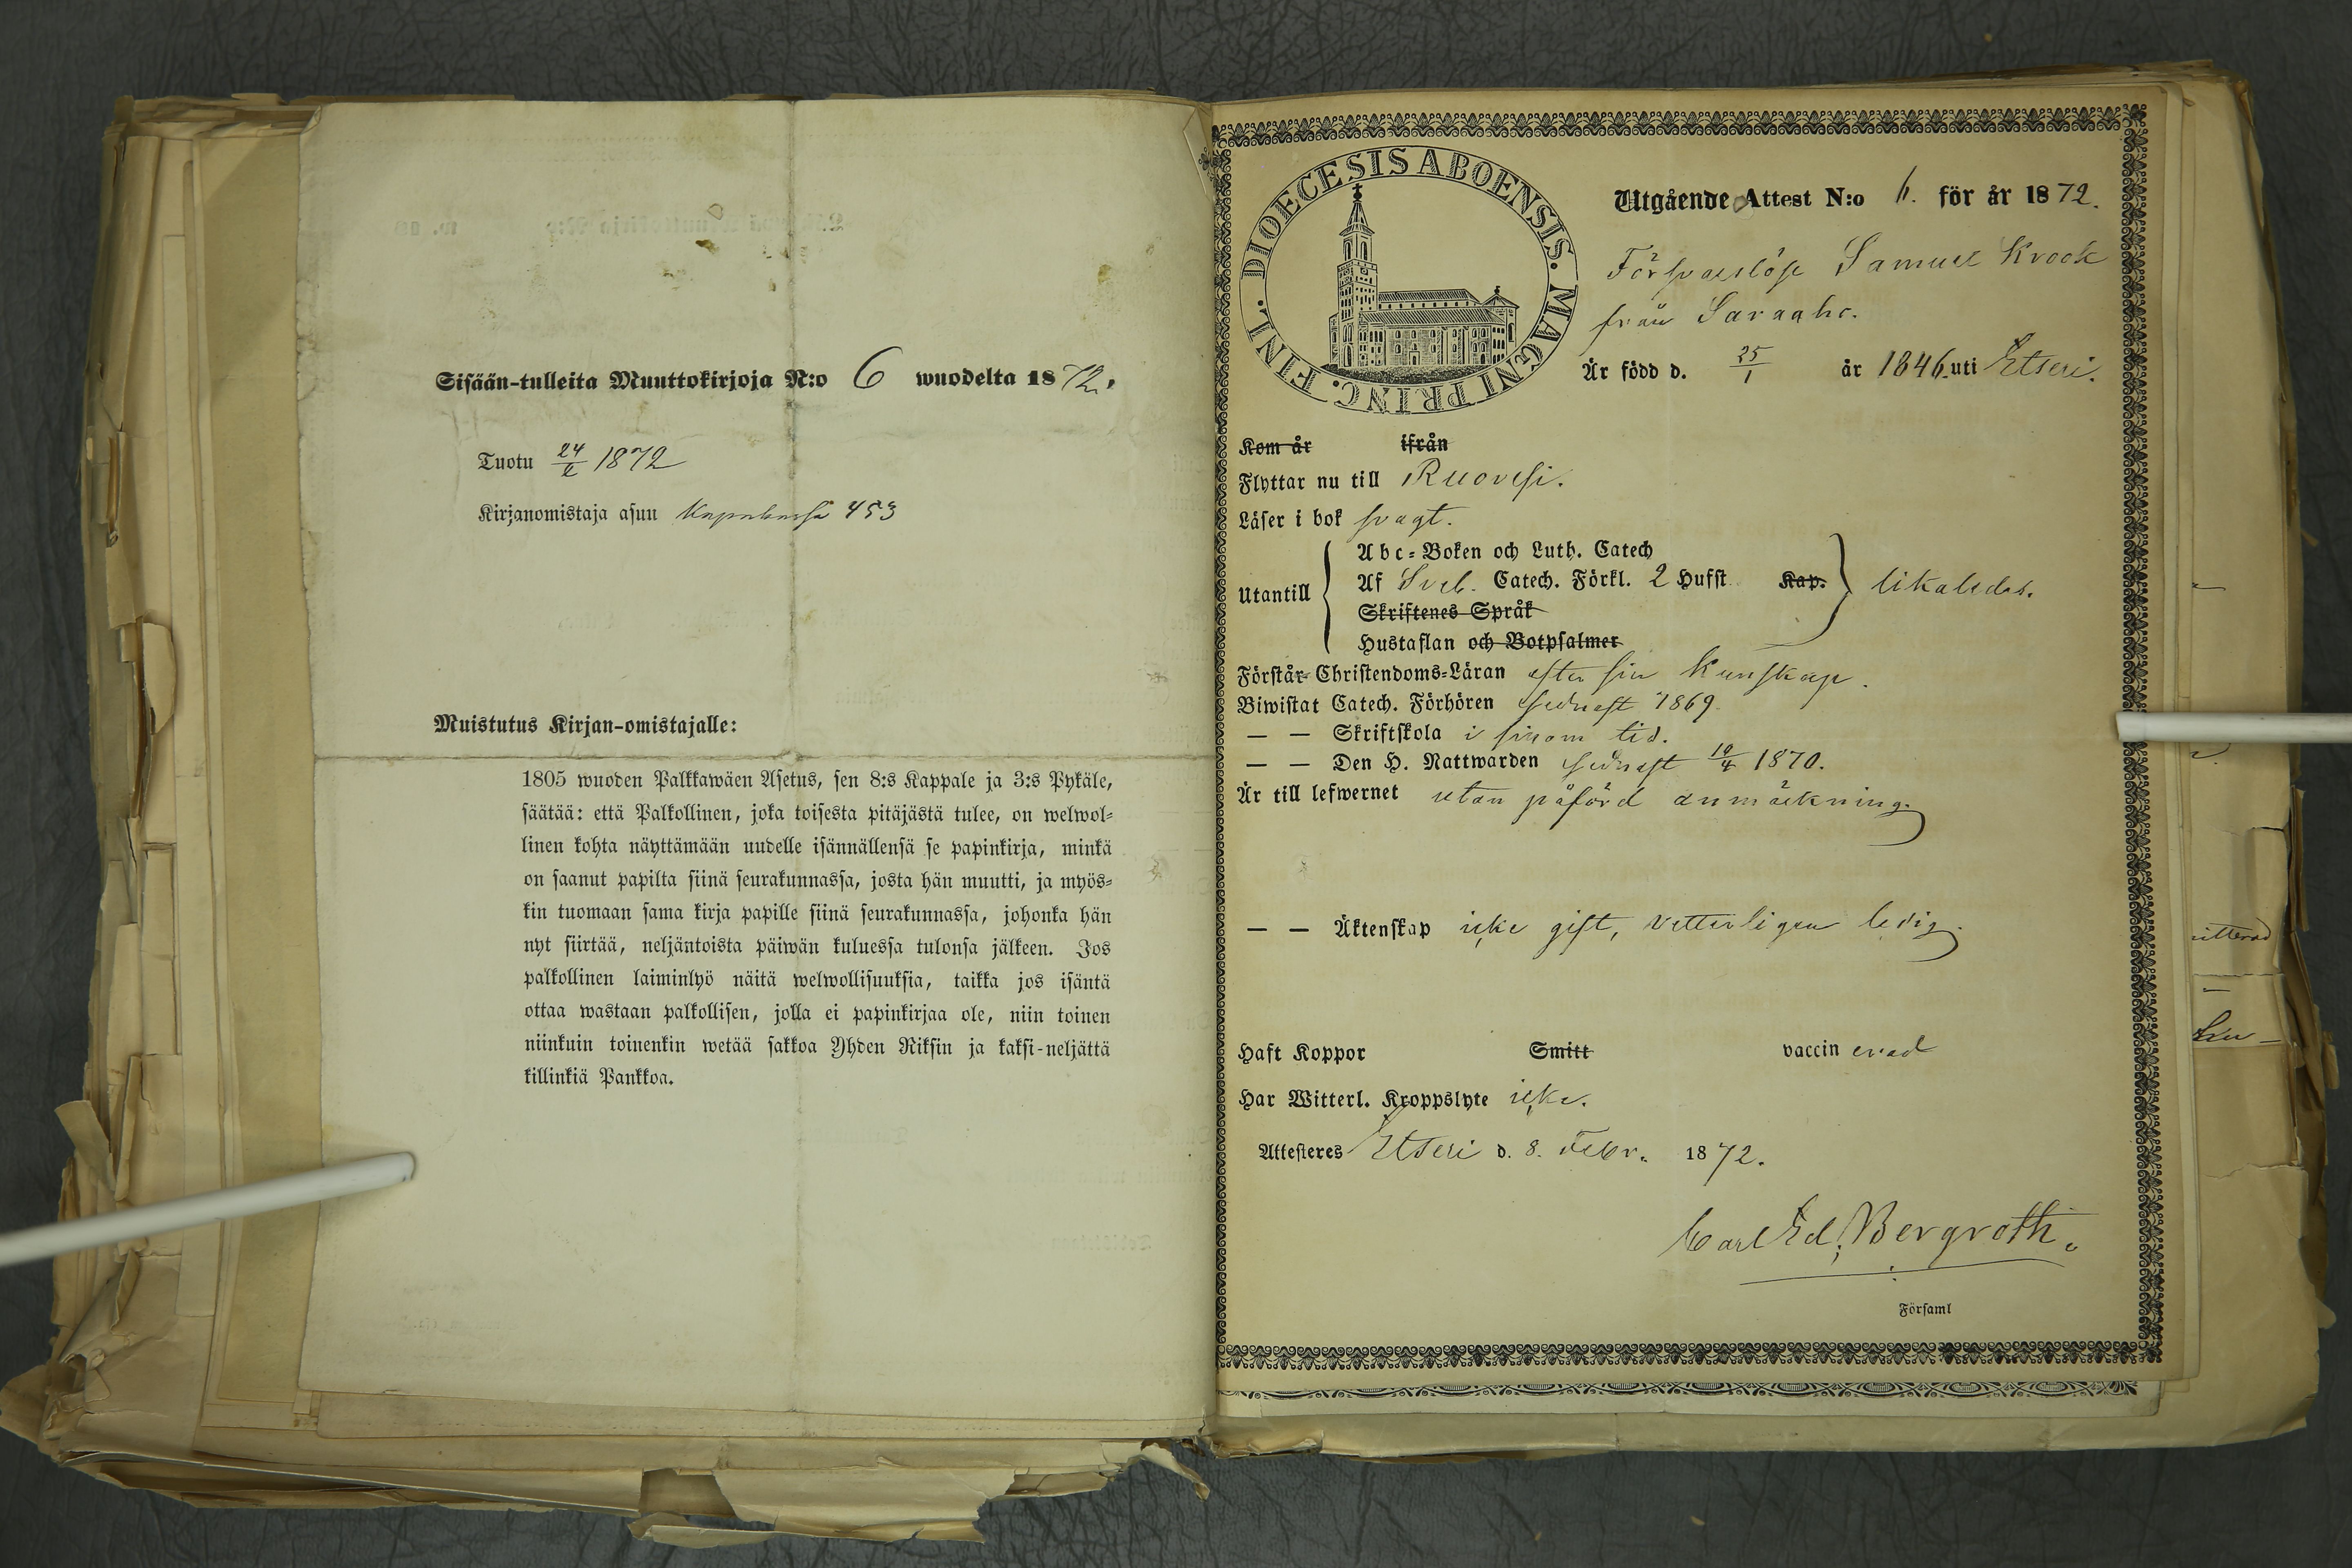 Sisään-tulleita Muuttokirjoja N:o 6 wuodelta 1872.
Tuotu 24/2 1872
Kirjanomistaja asuu 453
Muistutus Kirjan-omistajalle:
1805 wuoden Palkkawäen Asetus, sen 8:s Kappale ja 3:s Pykäle,
säätää: että Palkollinen, joka toisesta pitäjästä tulee, on welwol-
linen kohta näyttämään uudelle isännällensä se papinkirja, minkä
on saanut papilta siinä seurakunnassa, josta hän muutti, ja myös-
kin tuomaan sama kirja papille siinä seurakunnassa, johonka hän
nyt siirtää, neljäntoista päiwän kuluessa tulonsa jälkeen. Jos
palkollinen laiminlyö näitä welwollisuuksia, taikka jos isäntä
ottaa wastaan palkollisen, jolla ei papinkirjaa ole, niin toinen
niinkuin toinenkin wetää sakkoa Yhden Riksin ja kaksi-neljättä
killinkiä Pankkoa.
FINL. DIOECESIS ABOENSIS. MAGNI PRINC.
Utgående Attest N:o 6. för år 1872.
Försvarslöse Samuel Krook
från Saraaho.
Är född d. 25/1 år 1846. uti Etseri.
Kom år ifrån
Flyttar nu till Ruovesi.
Läser i bok svagt.
Utantill
Abc-Boken och Luth. Catech
Af Sveb. Catech. Förkl. 2 Hufst Kap.
Skriftenes Språk
Hustaflan och Botpsalmer
likaledes.
Förstår Christendoms-Läran efter sin kunskap.
Biwistat Catech. Förhören sednast 1869.
— — Skriftskola i sinom tid.
— — Den H. Nattwarden sednast 10/4 1870.
Är till lefwernet utan påförd anmärkning.
— — Äktenskap icke gift, vetterligen ledig.
Haft Koppor Smitt vaccinerad
Har Witterl. Kroppslyte icke.
Attesteres Etseri d. 8. Febr. 1872.
Carl Ed. Bergroth.
Församl